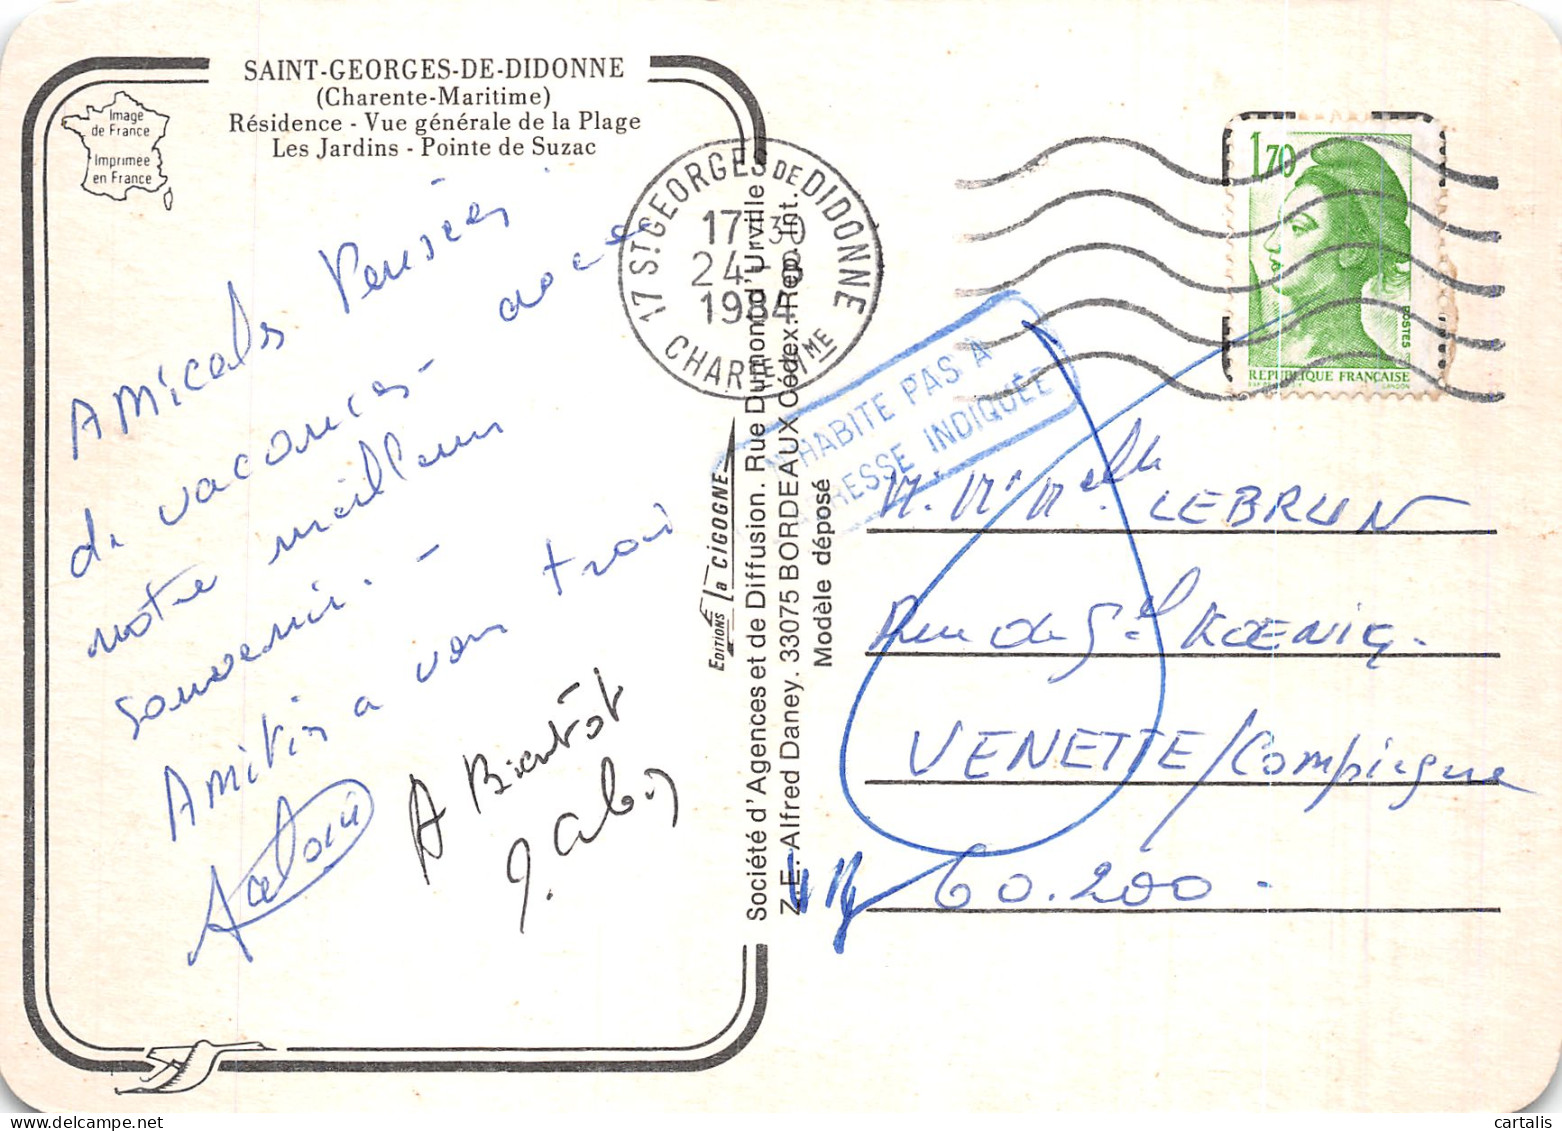 SAINT-GEORGES-DE-DIDONNE
(Charente-Maritime)
Résidence - Vue générale de la Plage
Les Jardins - Pointe de Suzac
Image
de France
Imprimée
en France
Amicales Pensées
de vacances - avec
notre meilleur
souvenir. -
Amitiés a vous trois
A Bientôt
17 ST GEORGES DE DIDONNE
17-30
24-8
1984
CHARENTE MME
EDITIONS la CIGOGNE
Société d'Agences et de Diffusion. Rue Dumond d'Urville
Z.-E. Alfred Daney. 33075 BORDEAUX Cédex. Rep. Int.
Modèle déposé
N'HABITE PAS À
L'ADRESSE INDIQUÉE
1,70
POSTES
REPUBLIQUE FRANÇAISE
M. Mr Melle LEBRUN
Rue du Gal KOENIG.
VENETTE/Compiegne
60.200 -
cartalis